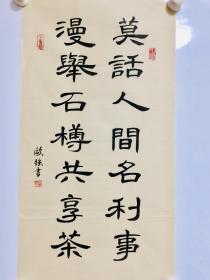 莫話人間名利事
漫舉石樽共享茶